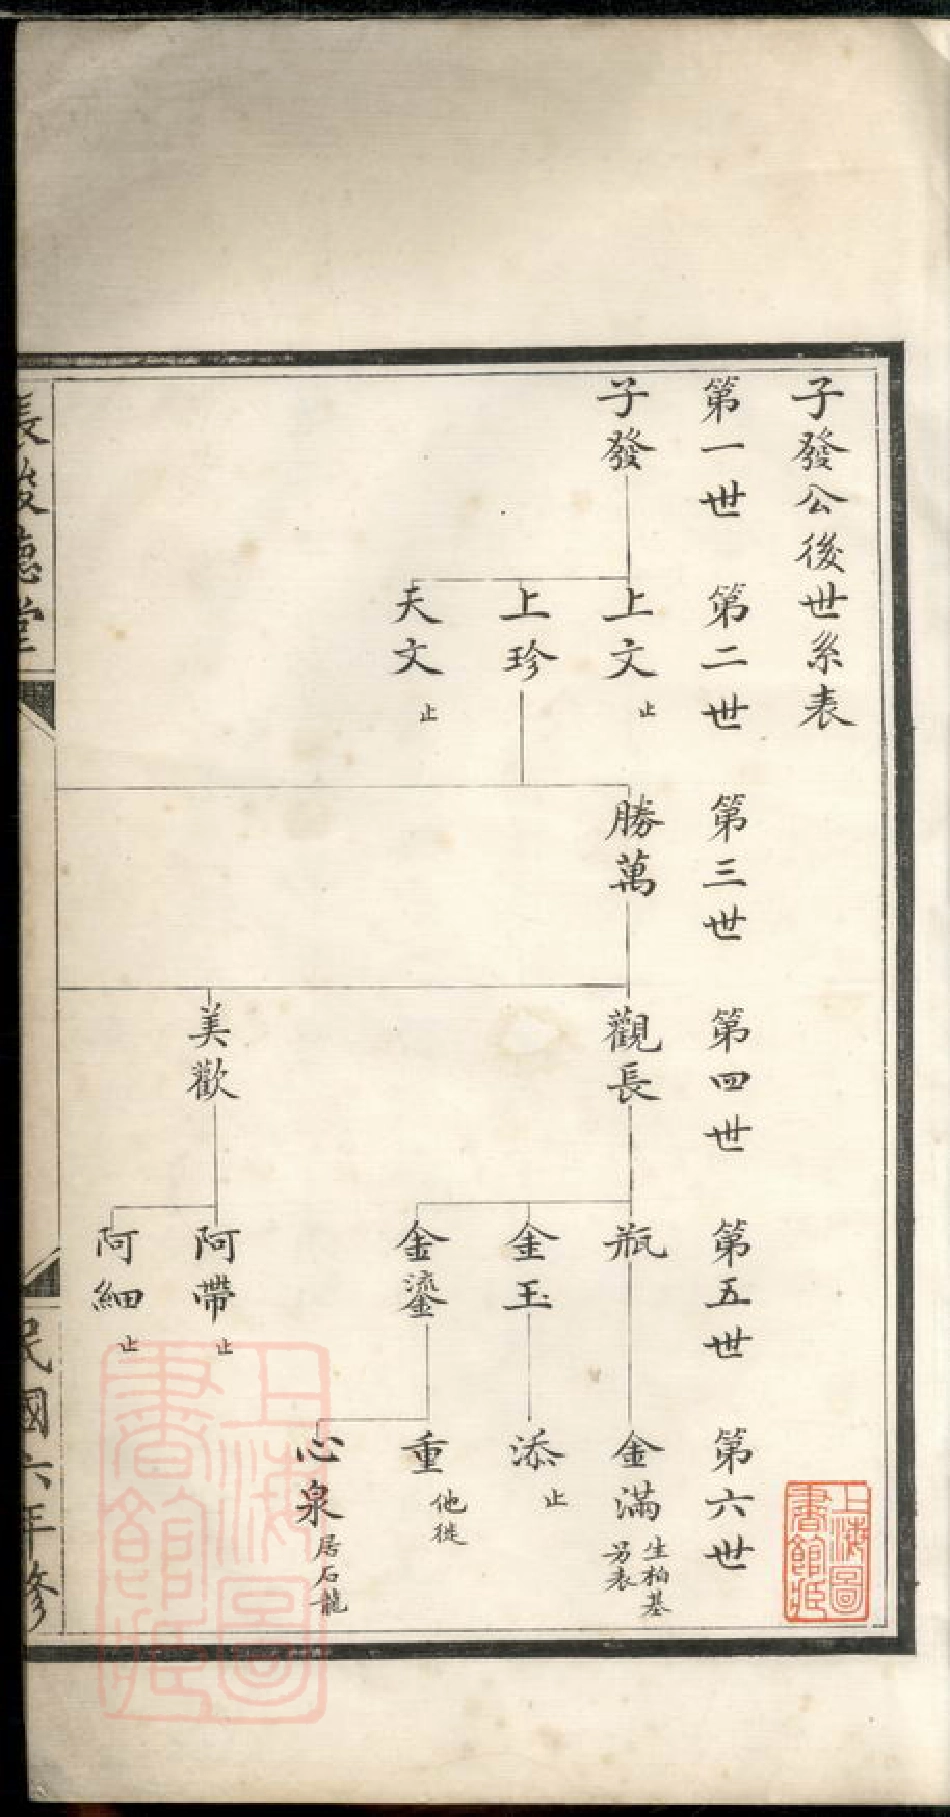 子發公後世系表
第一世 第二世 第三世 第四世 第五世 第六世
子發
上文 止
上珍
夫文 止
勝萬
觀長
美歡
瓶
金玉
金鎏
阿帶 止
阿細 止
金滿 生柏基 另表
添 止
重 他徙
心泉 居石龍
德堂
民國六年修
上海圖書館藏
上海圖書館藏